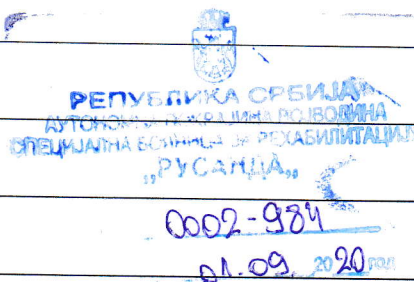 РЕПУБЛИКА СРБИЈА
АУТОНОМНА ПОКРАЈИНА ВОЈВОДИНА
СПЕЦИЈАЛНА БОЛНИЦА ЗА РЕХАБИЛИТАЦИЈУ
„РУСАНДА„
0002-984
01.09. 2020 год